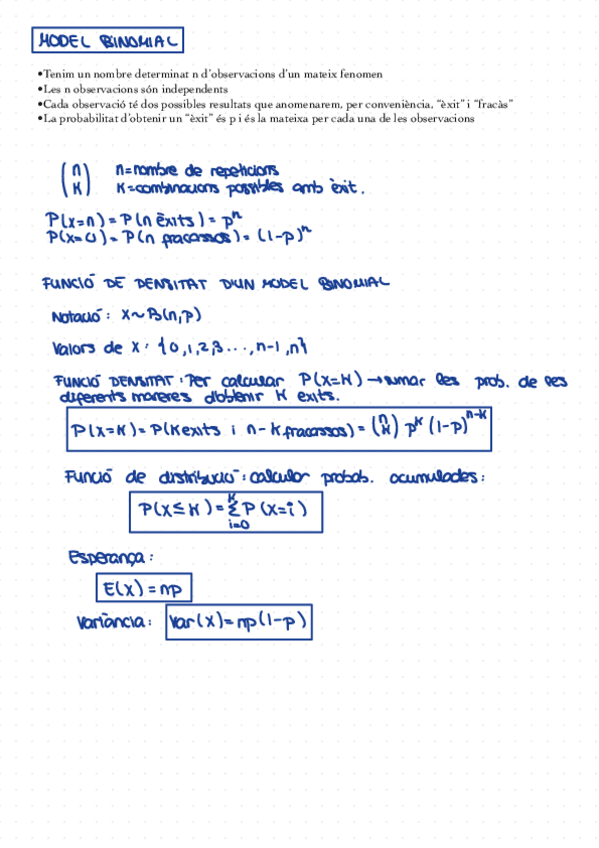 MODEL BINOMIAL
•Tenim un nombre determinat n d'observacions d'un mateix fenomen
•Les n observacions són independents
•Cada observació té dos possibles resultats que anomenarem, per conveniència, "èxit" i "fracàs"
•La probabilitat d'obtenir un "èxit" és p i és la mateixa per cada una de les observacions
(n K) n=nombre de repeticions
K=combinacions possibles amb èxit.
P(x=n)=P(n èxits)=pⁿ
P(x=0)=P(n fracassos)=(1-p)ⁿ
FUNCIÓ DE DENSITAT D'UN MODEL BINOMIAL
Notació: X~B(n,p)
Valors de x: {0,1,2,3...,n-1,n}
FUNCIÓ DENSITAT: Per calcular P(X=K) → sumar les prob. de les
diferents maneres d'obtenir K exits.
P(X=K)=P(K exits i n-k fracassos)=(n K) pᵏ (1-p)ⁿ⁻ᵏ
Funció de distribució: calcular probab. acumulades:
P(X≤K)=Σᴷᵢ₌₀ P(X=i)
Esperança:
E(X)=np
Variància: Var(X)=np(1-p)